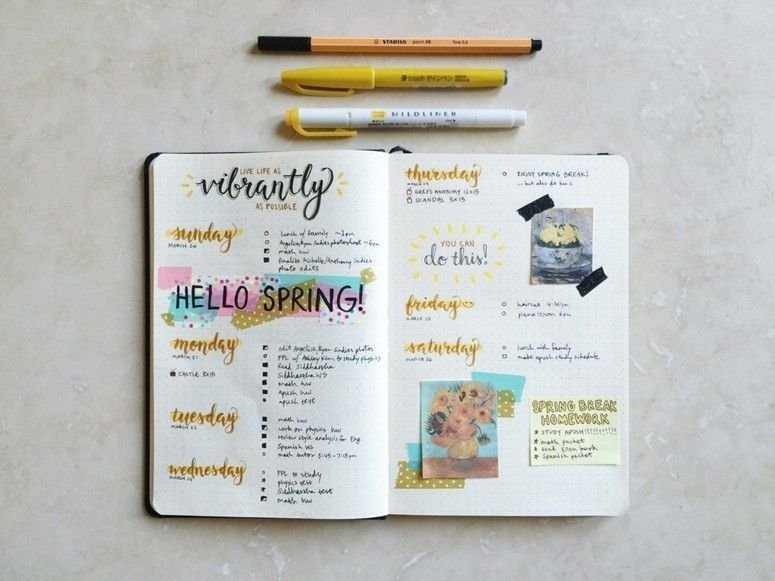 STABILO point 88 fine 0.4
touch
MILDLINER
LIVE LIFE AS
vibrantly
AS POSSIBLE
sunday
MARCH 20
lunch w/ family ~1pm
math hw
finalize Michelle/Anthony Sadies
photo edits
HELLO SPRING!
monday
MARCH 21
CASTLE 8x15
edit Angelica/Ryan Sadies photos
FPL w/ Ashley Kim to study physics
Read Siddhartha
Siddhartha WS
math hw
apush hw
apush test
tuesday
MARCH 22
math hw
work on physics hw
review style analysis for Eng.
Spanish WS
math tutor 5:45-7:15pm
wednesday
MARCH 23
FPL to study
physics test
Siddhartha test
math hw
thursday
MARCH 24
GREY'S ANATOMY 12x15
SCANDAL 5x15
ENJOY SPRING BREAK!
...but also do hw :)
YOU CAN
do this!
friday
MARCH 25
haircut 4:30pm
piano lesson 6pm
saturday
MARCH 26
lunch with family
make apush study schedule
SPRING BREAK
HOMEWORK
STUDY APUSH!!!!!!!!!
math packet
read Ellen book
Spanish packet